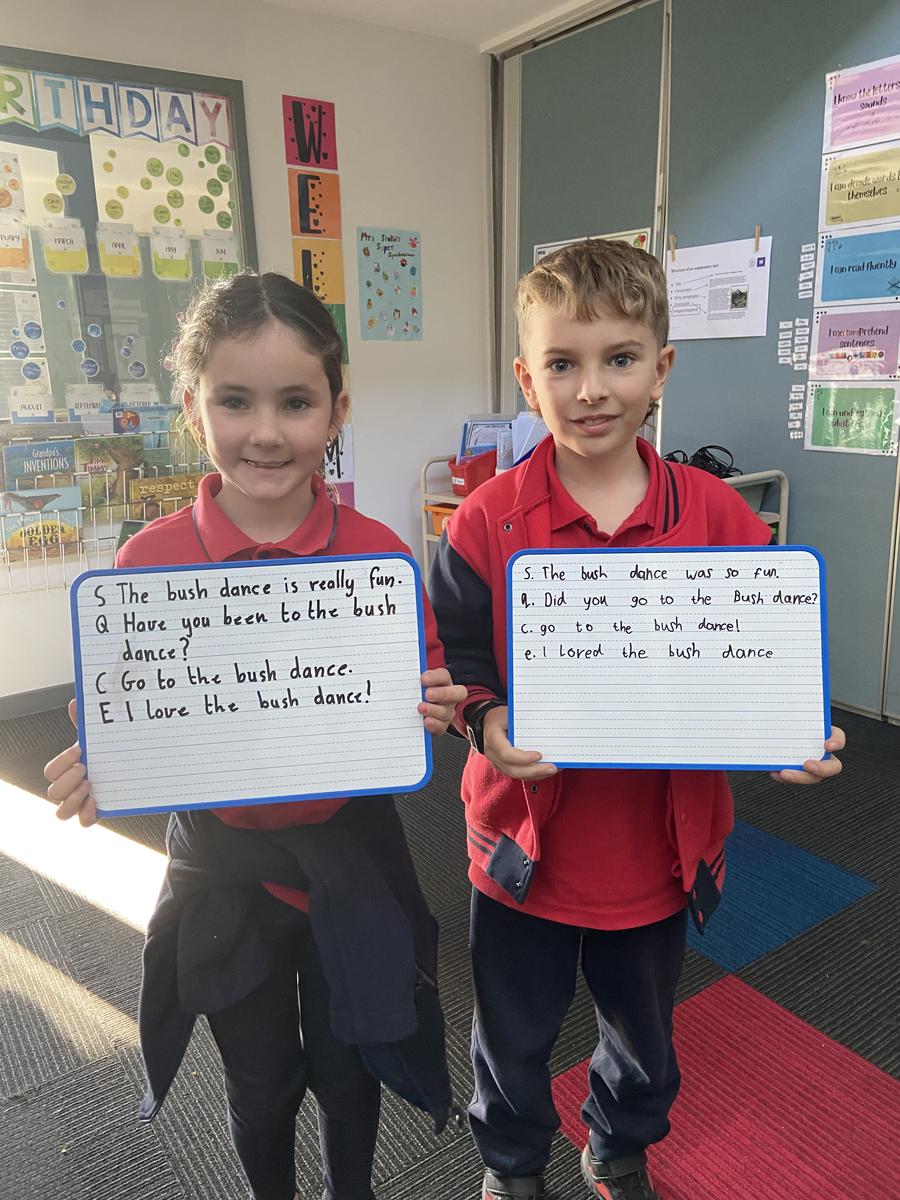 RTHDAY
MARCH
APRIL
MAY
JUNE
AUGUST
SEPTEMBER
OCTOBER
GRANDPA'S
INVENTIONS
TOMMY
respect
GOLDEN
EGG
W
E
L
M
Super
Structure of an explanation text
I know the letters
sounds
I can decode words
themselves
I can read fluently
I can comprehend
sentences
I can understand
S The bush dance is really fun.
Q Have you been to the bush
dance?
C Go to the bush dance.
E I love the bush dance!
S. The bush dance was so fun.
q. Did you go to the Bush dance?
C. go to the bush dance!
e. I Loved the bush dance